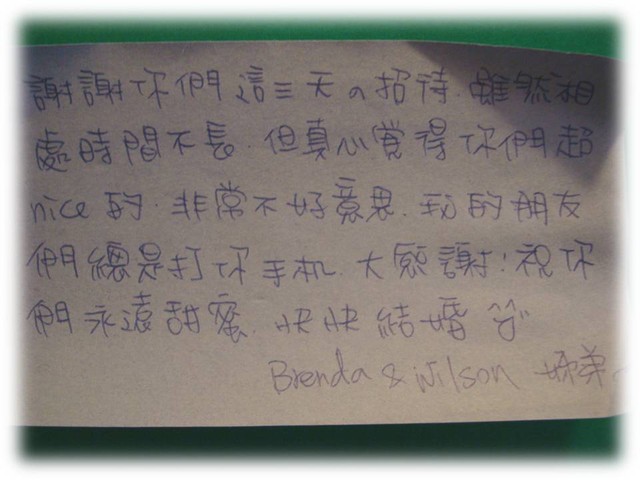 謝謝你們這三天の招待.雖然相
處時間不長.但真心覺得你們超
nice的.非常不好意思.我的朋友
們總是打你手机.大感謝!祝你
們永遠甜蜜.快快結婚^^
Brenda & Wilson 姊弟